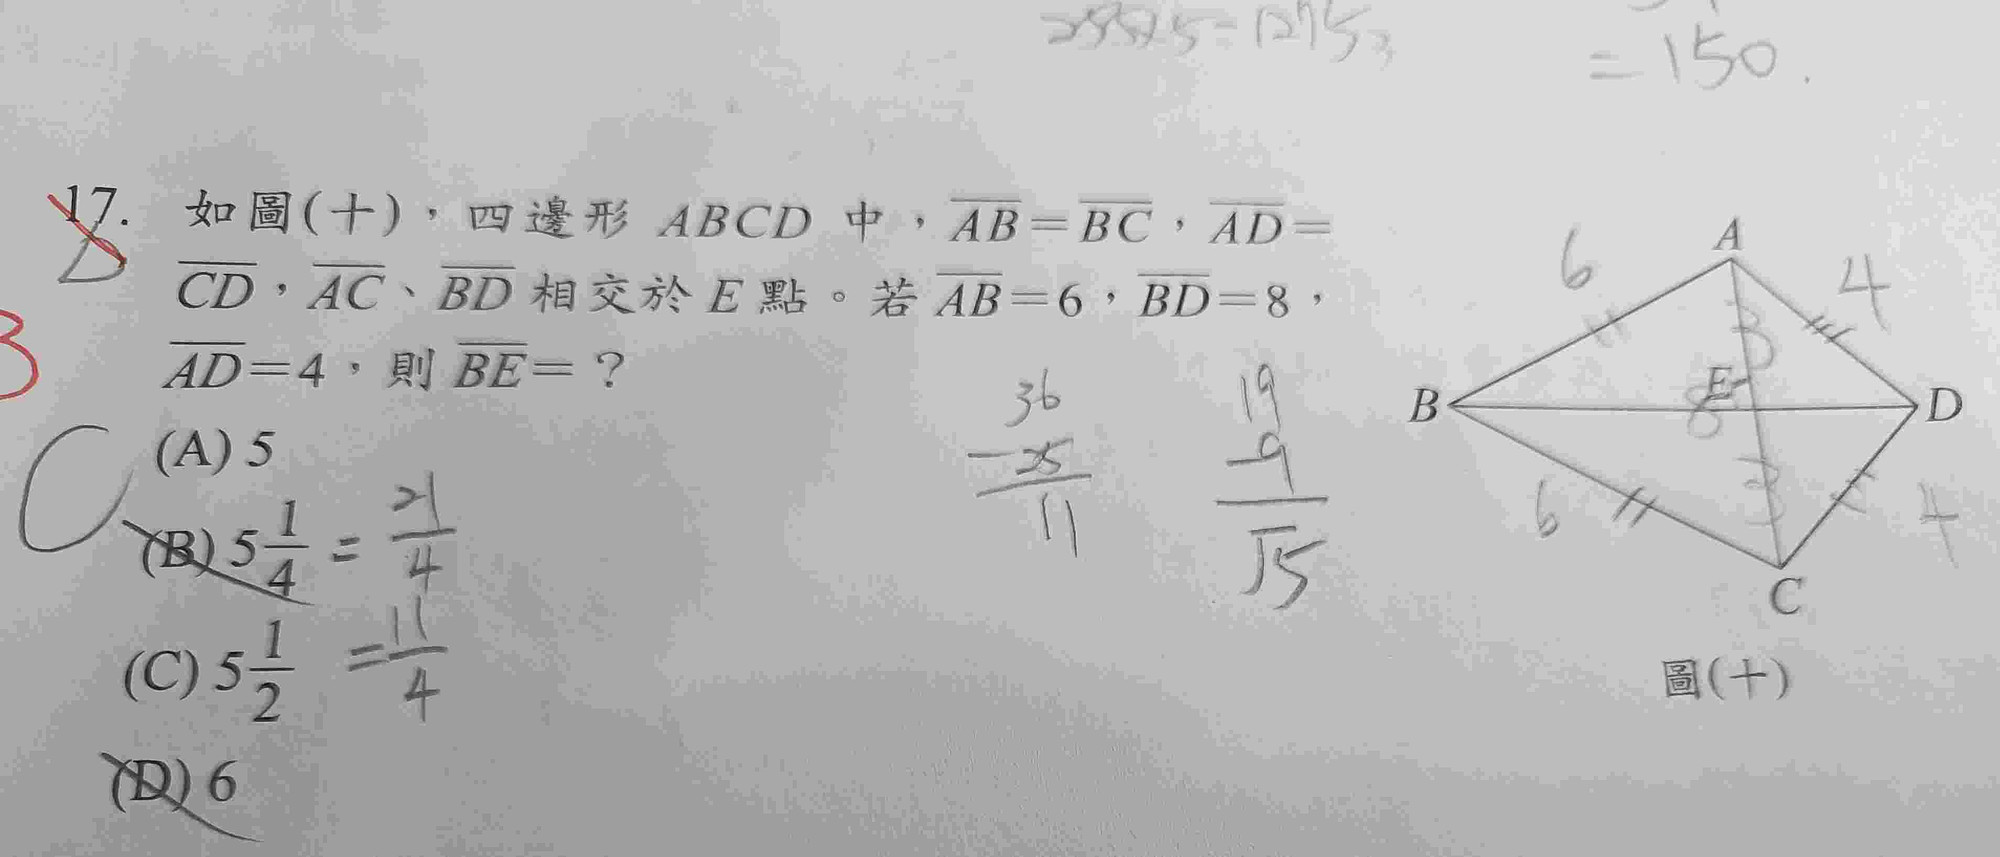 255×5=1275
=150.
17. 如圖(十)，四邊形 ABCD 中，AB=BC，AD=
CD，AC、BD 相交於 E 點。若 AB=6，BD=8，
AD=4，則 BE=？
(A) 5
(B) 5 1/4 = 21/4
(C) 5 1/2 = 11/4
(D) 6
D
3
C
36
-25
11
19
-9
√5
A
B
C
D
E
6
4
8
6
4
圖(十)